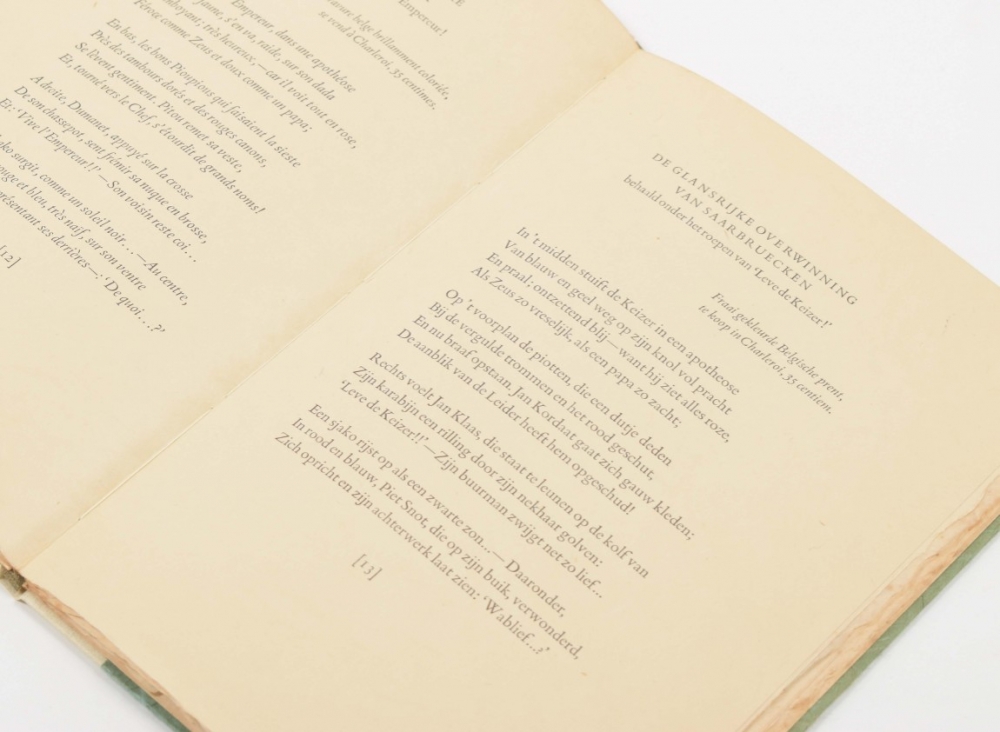 Empereur!
belge brillamment coloriée,
se vend à Charleroi, 35 centimes.
Empereur, dans une apothéose
jaune, s'en va, raide, sur son dada
flamboyant; très heureux, — car il voit tout en rose,
Féroce comme Zeus et doux comme un papa;
En bas, les bons Pioupious qui faisaient la sieste
Près des tambours dorés et des rouges canons,
Se lèvent gentiment. Pitou remet sa veste,
Et, tourné vers le Chef, s'étourdit de grands noms!
A droite, Dumanet, appuyé sur la crosse
De son chassepot, sent frémir sa nuque en brosse,
Et: 'Vive l'Empereur!!' — Son voisin reste coi...
surgit, comme un soleil noir... — Au centre,
rouge et bleu, très naïf, sur son ventre
présentant ses derrières —. 'De quoi...?'
[12]
DE GLANSRIJKE OVERWINNING
VAN SAARBRUECKEN
behaald onder het roepen van 'Leve de Keizer!'
Fraai gekleurde Belgische prent,
te koop in Charleroi, 35 centiem.
In 't midden stuift de Keizer in een apotheose
Van blauw en geel weg op zijn knol vol pracht
En praal; ontzettend blij — want hij ziet alles roze,
Als Zeus zo vreselijk, als een papa zo zacht;
Op 't voorplan de piotten, die een dutje deden
Bij de vergulde trommen en het rood geschut,
En nu braaf opstaan. Jan Kordaat gaat zich gauw kleden;
De aanblik van de Leider heeft hem opgeschud!
Rechts voelt Jan Klaas, die staat te leunen op de kolf van
Zijn karabijn een rilling door zijn nekhaar golven:
'Leve de Keizer!!' — Zijn buurman zwijgt net zo lief...
Een sjako rijst op als een zwarte zon... — Daaronder,
In rood en blauw, Piet Snot, die op zijn buik, verwonderd,
Zich opricht en zijn achterwerk laat zien: 'Wablief...?'
[13]